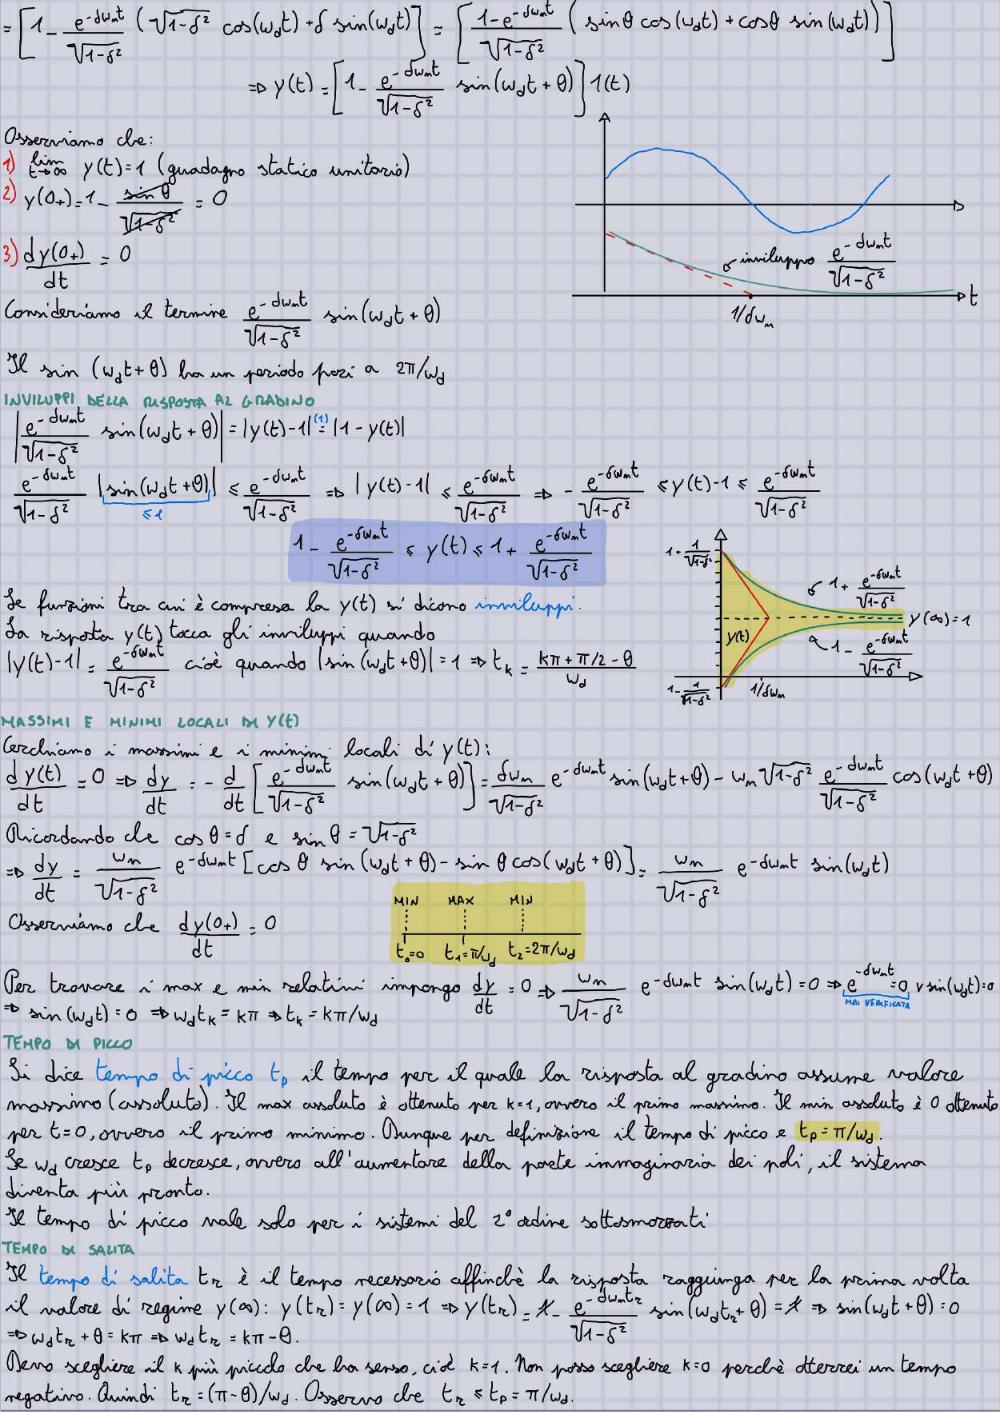 = [1 - e^{-δωnt}/√(1-δ²) (√(1-δ²) cos(ωdt) + δ sin(ωdt))] = [1-e^{-δωnt}/√(1-δ²) (sinθ cos(ωdt) + cosθ sin(ωdt))]
⇒ y(t) = [1 - e^{-δωnt}/√(1-δ²) sin(ωdt + θ)] 1(t)
Osserviamo che:
1) lim t→∞ y(t) = 1 (guadagno statico unitario)
2) y(0+) = 1 - sin θ/√(1-δ²) = 0
3) dy(0+)/dt = 0
inviluppo e^{-δωnt}/√(1-δ²)
t
1/δωn
Consideriamo il termine e^{-δωnt}/√(1-δ²) sin(ωdt + θ)
Il sin (ωdt + θ) ha un periodo pari a 2π/ωd
INVILUPPI DELLA RISPOSTA AL GRADINO
|e^{-δωnt}/√(1-δ²) sin(ωdt + θ)| = |y(t) - 1| (1)= |1 - y(t)|
e^{-δωnt}/√(1-δ²) |sin(ωdt + θ)| ≤ e^{-δωnt}/√(1-δ²) ⇒ |y(t) - 1| ≤ e^{-δωnt}/√(1-δ²) ⇒ - e^{-δωnt}/√(1-δ²) ≤ y(t) - 1 ≤ e^{-δωnt}/√(1-δ²)
≤ 1
1 - e^{-δωnt}/√(1-δ²) ≤ y(t) ≤ 1 + e^{-δωnt}/√(1-δ²)
1 + 1/√(1-δ²)
1 + e^{-δωnt}/√(1-δ²)
y(∞) = 1
y(t)
1 - e^{-δωnt}/√(1-δ²)
1 - 1/√(1-δ²)
1/δωn
Le funzioni tra cui è compresa la y(t) si dicono inviluppi.
La risposta y(t) tocca gli inviluppi quando
|y(t) - 1| = e^{-δωnt}/√(1-δ²) cioè quando |sin(ωdt + θ)| = 1 ⇒ tk = (kπ + π/2 - θ)/ωd
MASSIMI E MINIMI LOCALI DI Y(t)
Cerchiamo i massimi e i minimi locali di y(t):
dy(t)/dt = 0 ⇒ dy/dt = - d/dt [e^{-δωnt}/√(1-δ²) sin(ωdt + θ)] = δωn/√(1-δ²) e^{-δωnt} sin(ωdt + θ) - ωn √(1-δ²) e^{-δωnt}/√(1-δ²) cos(ωdt + θ)
Ricordando che cos θ = δ e sin θ = √(1-δ²)
⇒ dy/dt = ωn/√(1-δ²) e^{-δωnt} [cos θ sin (ωdt + θ) - sin θ cos(ωdt + θ)] = ωn/√(1-δ²) e^{-δωnt} sin(ωdt)
Osserviamo che dy(0+)/dt = 0
MIN MAX MIN
t0=0 t1=π/ωd t2=2π/ωd
Per trovare i max e min relativi impongo dy/dt = 0 ⇒ ωn/√(1-δ²) e^{-δωnt} sin(ωdt) = 0 ⇒ e^{-δωnt} = 0 ∨ sin(ωdt) = 0
MAI VERIFICATA
⇒ sin(ωdt) = 0 ⇒ ωdtk = kπ ⇒ tk = kπ/ωd
TEMPO DI PICCO
Si dice tempo di picco tp il tempo per il quale la risposta al gradino assume valore
massimo (assoluto). Il max assoluto è ottenuto per k=1, ovvero il primo massimo. Il min assoluto è 0 ottenuto
per t=0, ovvero il primo minimo. Dunque per definizione il tempo di picco è tp = π/ωd.
Se ωd cresce tp decresce, ovvero all'aumentare della parte immaginaria dei poli, il sistema
diventa più pronto.
Il tempo di picco vale solo per i sistemi del 2° ordine sottosmorzati
TEMPO DI SALITA
Il tempo di salita tr è il tempo necessario affinchè la risposta raggiunga per la prima volta
il valore di regime y(∞): y(tr) = y(∞) = 1 ⇒ y(tr) = 1 - e^{-δωntr}/√(1-δ²) sin(ωdtr + θ) = 1 ⇒ sin(ωdt + θ) = 0
⇒ ωdtr + θ = kπ ⇒ ωdtr = kπ - θ.
Devo scegliere il k più piccolo che ha senso, cioè k=1. Non posso scegliere k=0 perchè otterrei un tempo
negativo. Quindi tr = (π - θ)/ωd. Osservo che tr ≤ tp = π/ωd.